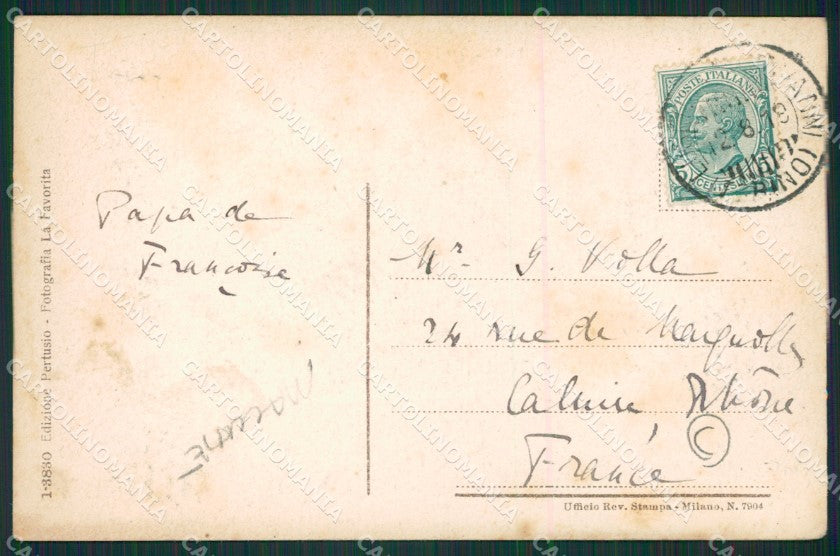 1-3830 Edizione Pertusio - Fotografia La Favorita
Papa de
Françoise
POSTE ITALIANE
Mr. G. Volla
24 rue de
Caluire, Rhône
France
C
Ufficio Rev. Stampa - Milano, N. 7904
CARTOLINOMANIA